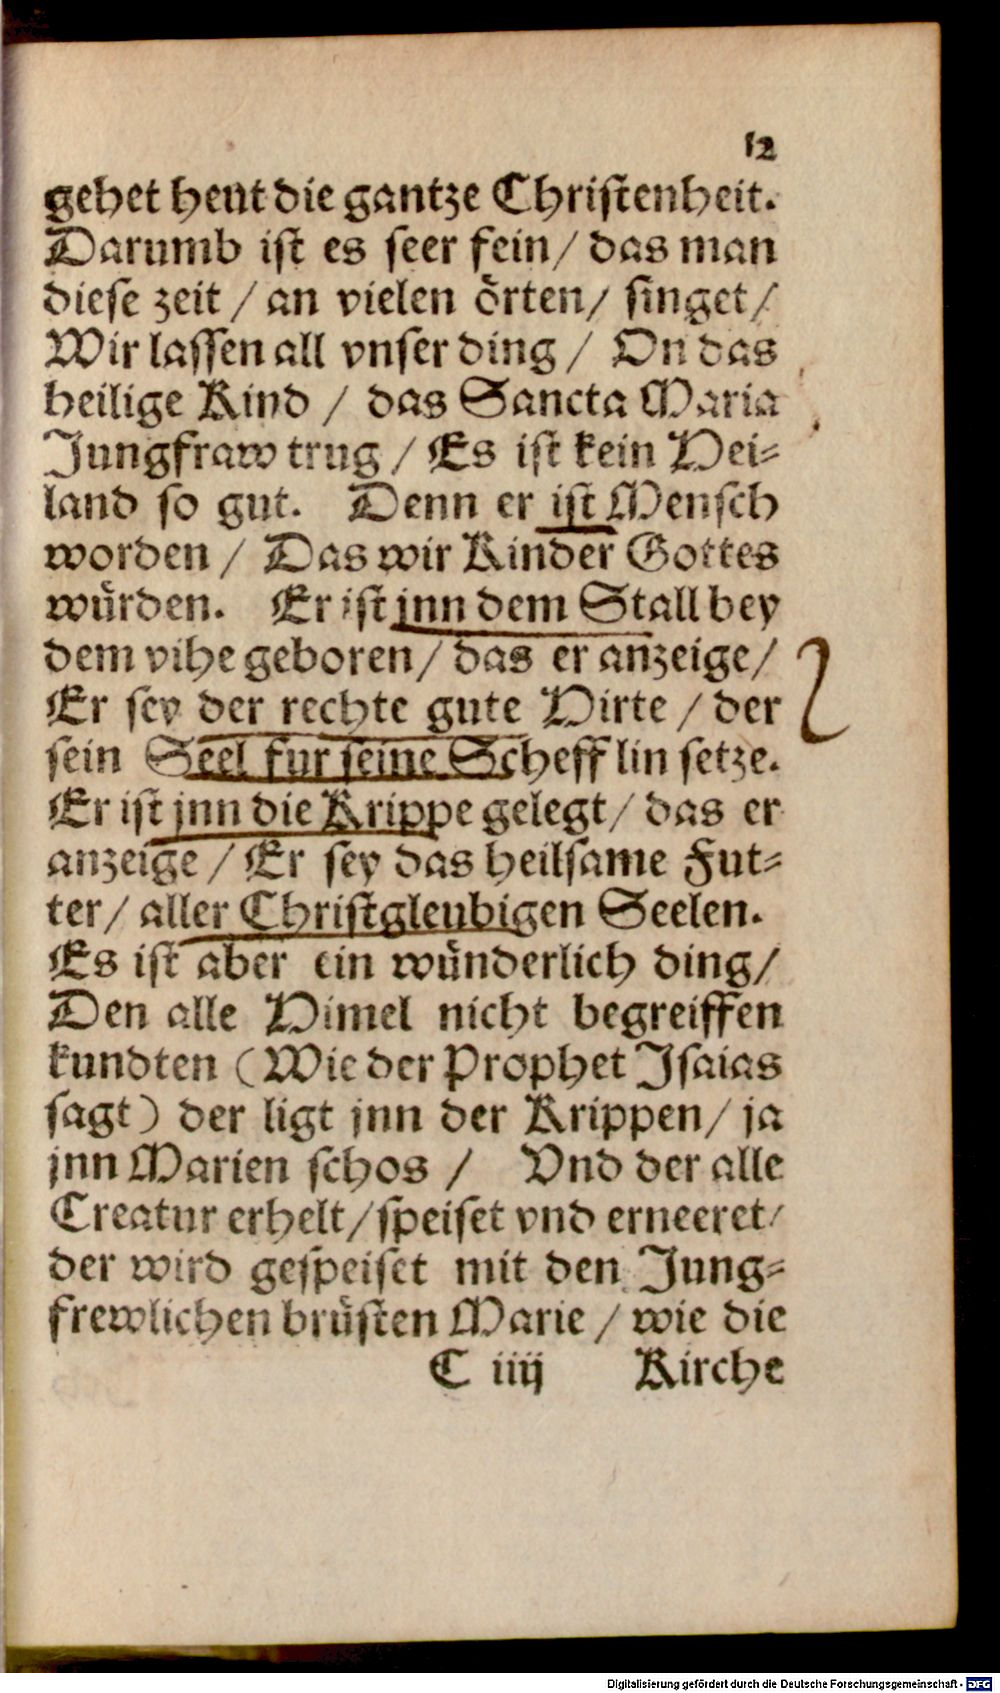 12
gehet heut die gantze Christenheit.
Darumb ist es seer fein / das man
diese zeit / an vielen örten / singet /
Wir lassen all vnser ding / On das
heilige Kind / das Sancta Maria
Jungfraw trug / Es ist kein Hei=
land so gut. Denn er ist Mensch
worden / Das wir Kinder Gottes
würden. Er ist jnn dem Stall bey
dem vihe geboren / das er anzeige /
Er sey der rechte gute Hirte / der
sein Seel fur seine Schefflin setze.
Er ist jnn die Krippe gelegt / das er
anzeige / Er sey das heilsame Fut=
ter / aller Christgleubigen Seelen.
Es ist aber ein wünderlich ding /
Den alle Himel nicht begreiffen
kundten (Wie der Prophet Isaias
sagt) der ligt jnn der Krippen / ja
jnn Marien schos / Vnd der alle
Creatur erhelt / speiset vnd erneeret /
der wird gespeiset mit den Jung=
frewlichen brüsten Marie / wie die
C iiij Kirche
Digitalisierung gefördert durch die Deutsche Forschungsgemeinschaft - DFG